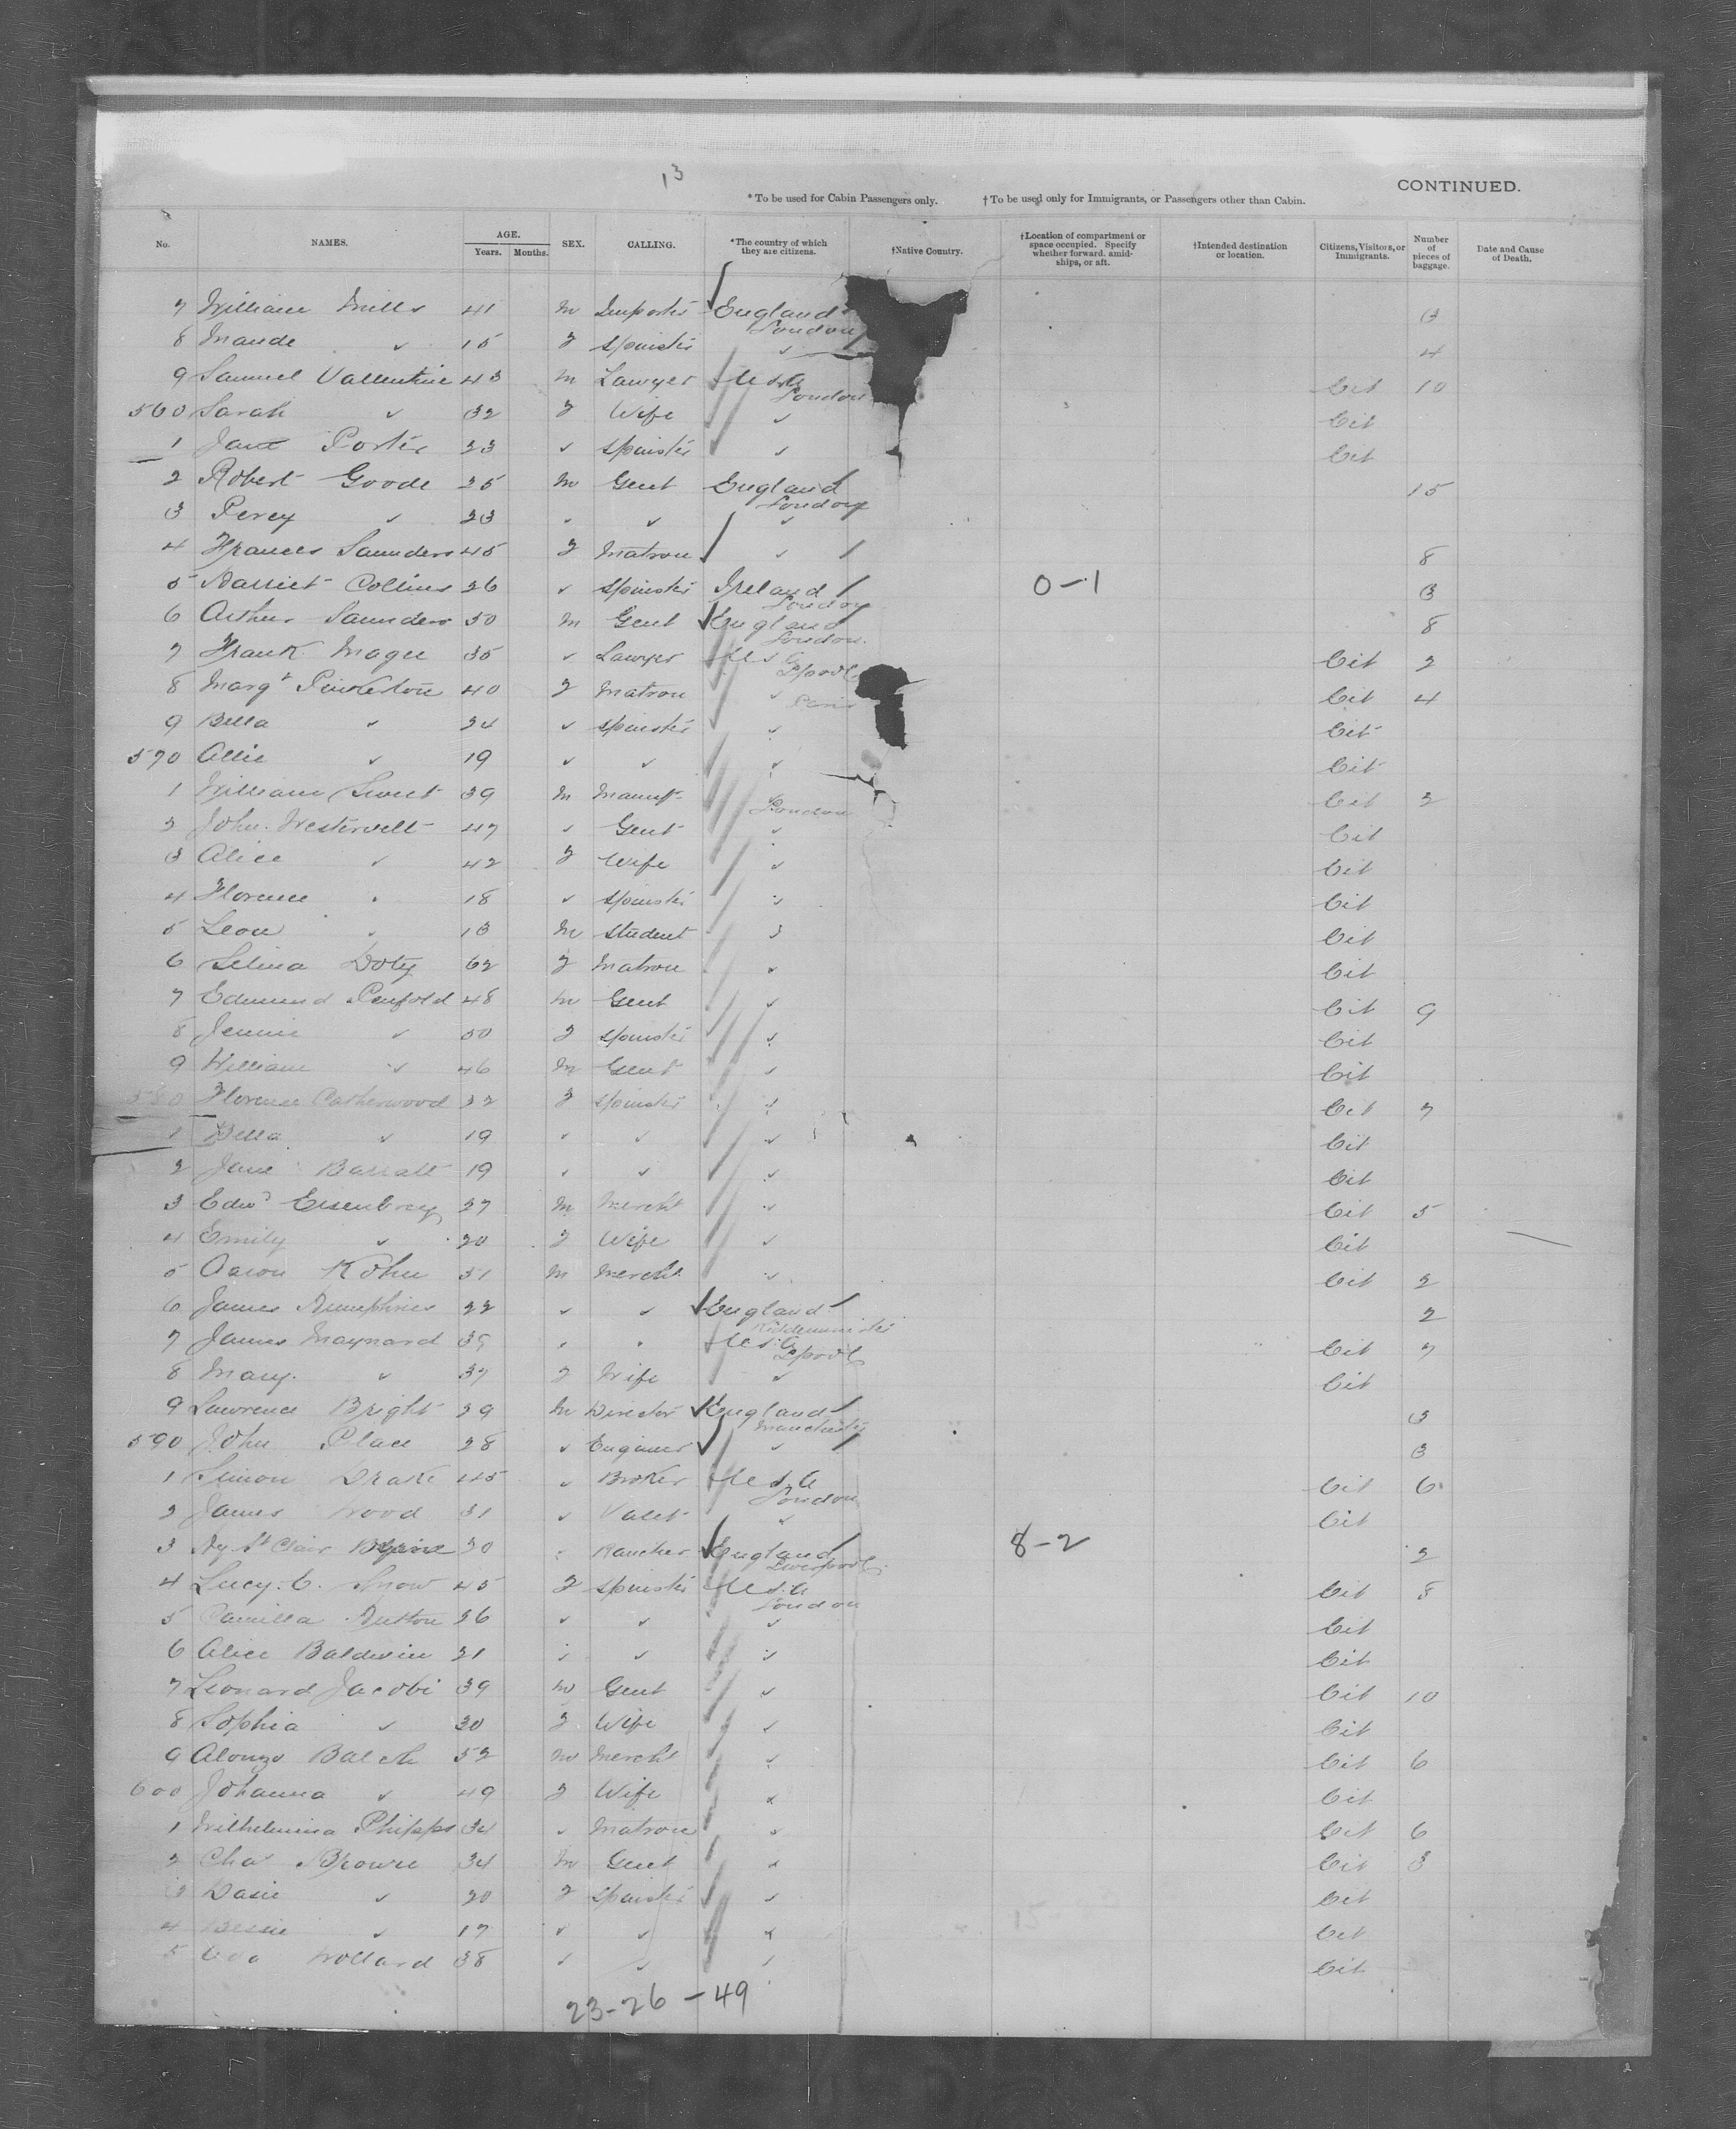 13
CONTINUED.
* To be used for Cabin Passengers only. † To be used only for Immigrants, or Passengers other than Cabin.
No. NAMES. AGE. Years. Months. SEX. CALLING. *The country of which they are citizens. †Native Country. †Location of compartment or space occupied. Specify whether forward. amidships, or aft. †Intended destination or location. Citizens, Visitors, or Immigrants. Number of pieces of baggage. Date and Cause of Death.
7 William Mills 41 M Importer England London 3
8 Maude " 15 F Spinster " 4
9 Samuel Vallentine 43 M Lawyer U.S.A London Cit 10
560 Sarah " 32 F Wife " Cit
1 Jane Porter 23 " Spinster " Cit
2 Robert Goode 25 M Gent England London 15
3 Percy " 23 " " "
4 Frances Saunders 45 F Matron " 8
5 Harriet Collins 26 " Spinster Ireland London 0-1 3
6 Arthur Saunders 50 M Gent England London 8
7 Frank Magee 35 " Lawyer U.S.A Lpool Cit 2
8 Margt Pinkerton 40 F Matron " Paris Cit 4
9 Bella " 24 " Spinster " Cit
570 Allie " 19 " " " Cit
1 William Sweet 39 M Manuf. " London Cit 2
2 John Westervelt 47 " Gent " Cit
3 Alice " 42 F Wife " Cit
4 Florence " 18 " Spinster " Cit
5 Leon " 13 M Student " Cit
6 Selina Doty 62 F Matron " Cit
7 Edmund Penfold 48 M Gent " Cit 9
8 Jennie " 50 F Spinster " Cit
9 William " 46 M Gent " Cit
580 Florence Catherwood 22 F Spinster " Cit 7
1 Bella " 19 " " " Cit
2 Jane Barratt 19 " " " Cit
3 Edwd Eisenbrey 27 M Mercht " Cit 5
4 Emily " 20 F Wife " Cit
5 Aaron Kohn 51 M Mercht " Cit 2
6 James Humphries 22 " " England Kidderminster 2
7 James Maynard 39 " " U.S.A Lpool Cit 7
8 Mary " 37 F Wife " Cit
9 Lawrence Bright 29 M Director England Manchester 3
590 John Place 28 " Engineer " 3
1 Simon Drake 45 " Broker U.S.A London Cit 6
2 James Wood 31 " Valet " Cit
3 Hy St Clair 30 " Rancher England Liverpool 8-2 2
4 Lucy C. Snow 45 F Spinster U.S.A London Cit 8
5 Camilla Hutton 26 " " " Cit
6 Alice Baldwin 21 " " " Cit
7 Leonard Jacobi 39 M Gent " Cit 10
8 Sophia " 30 F Wife " Cit
9 Alonzo Balch 52 M Mercht " Cit 6
600 Johanna " 49 F Wife " Cit
1 Wilhelmina Phipps 34 " Matron " Cit 6
2 Chas Browne 34 M Gent " Cit 3
3 Dasie " 20 F Spinster " Cit
4 Bessie " 17 " " " Cit
5 38 " " " Cit
23-26-49